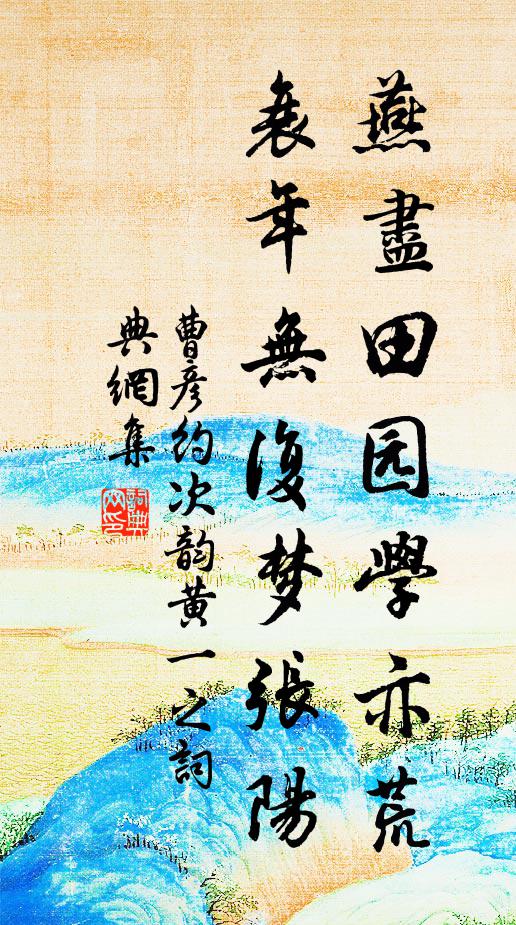 蕪盡田园學亦荒
衰年無復梦張陽
曹彦约次韵黄一之詞
典網集
詞典
网印